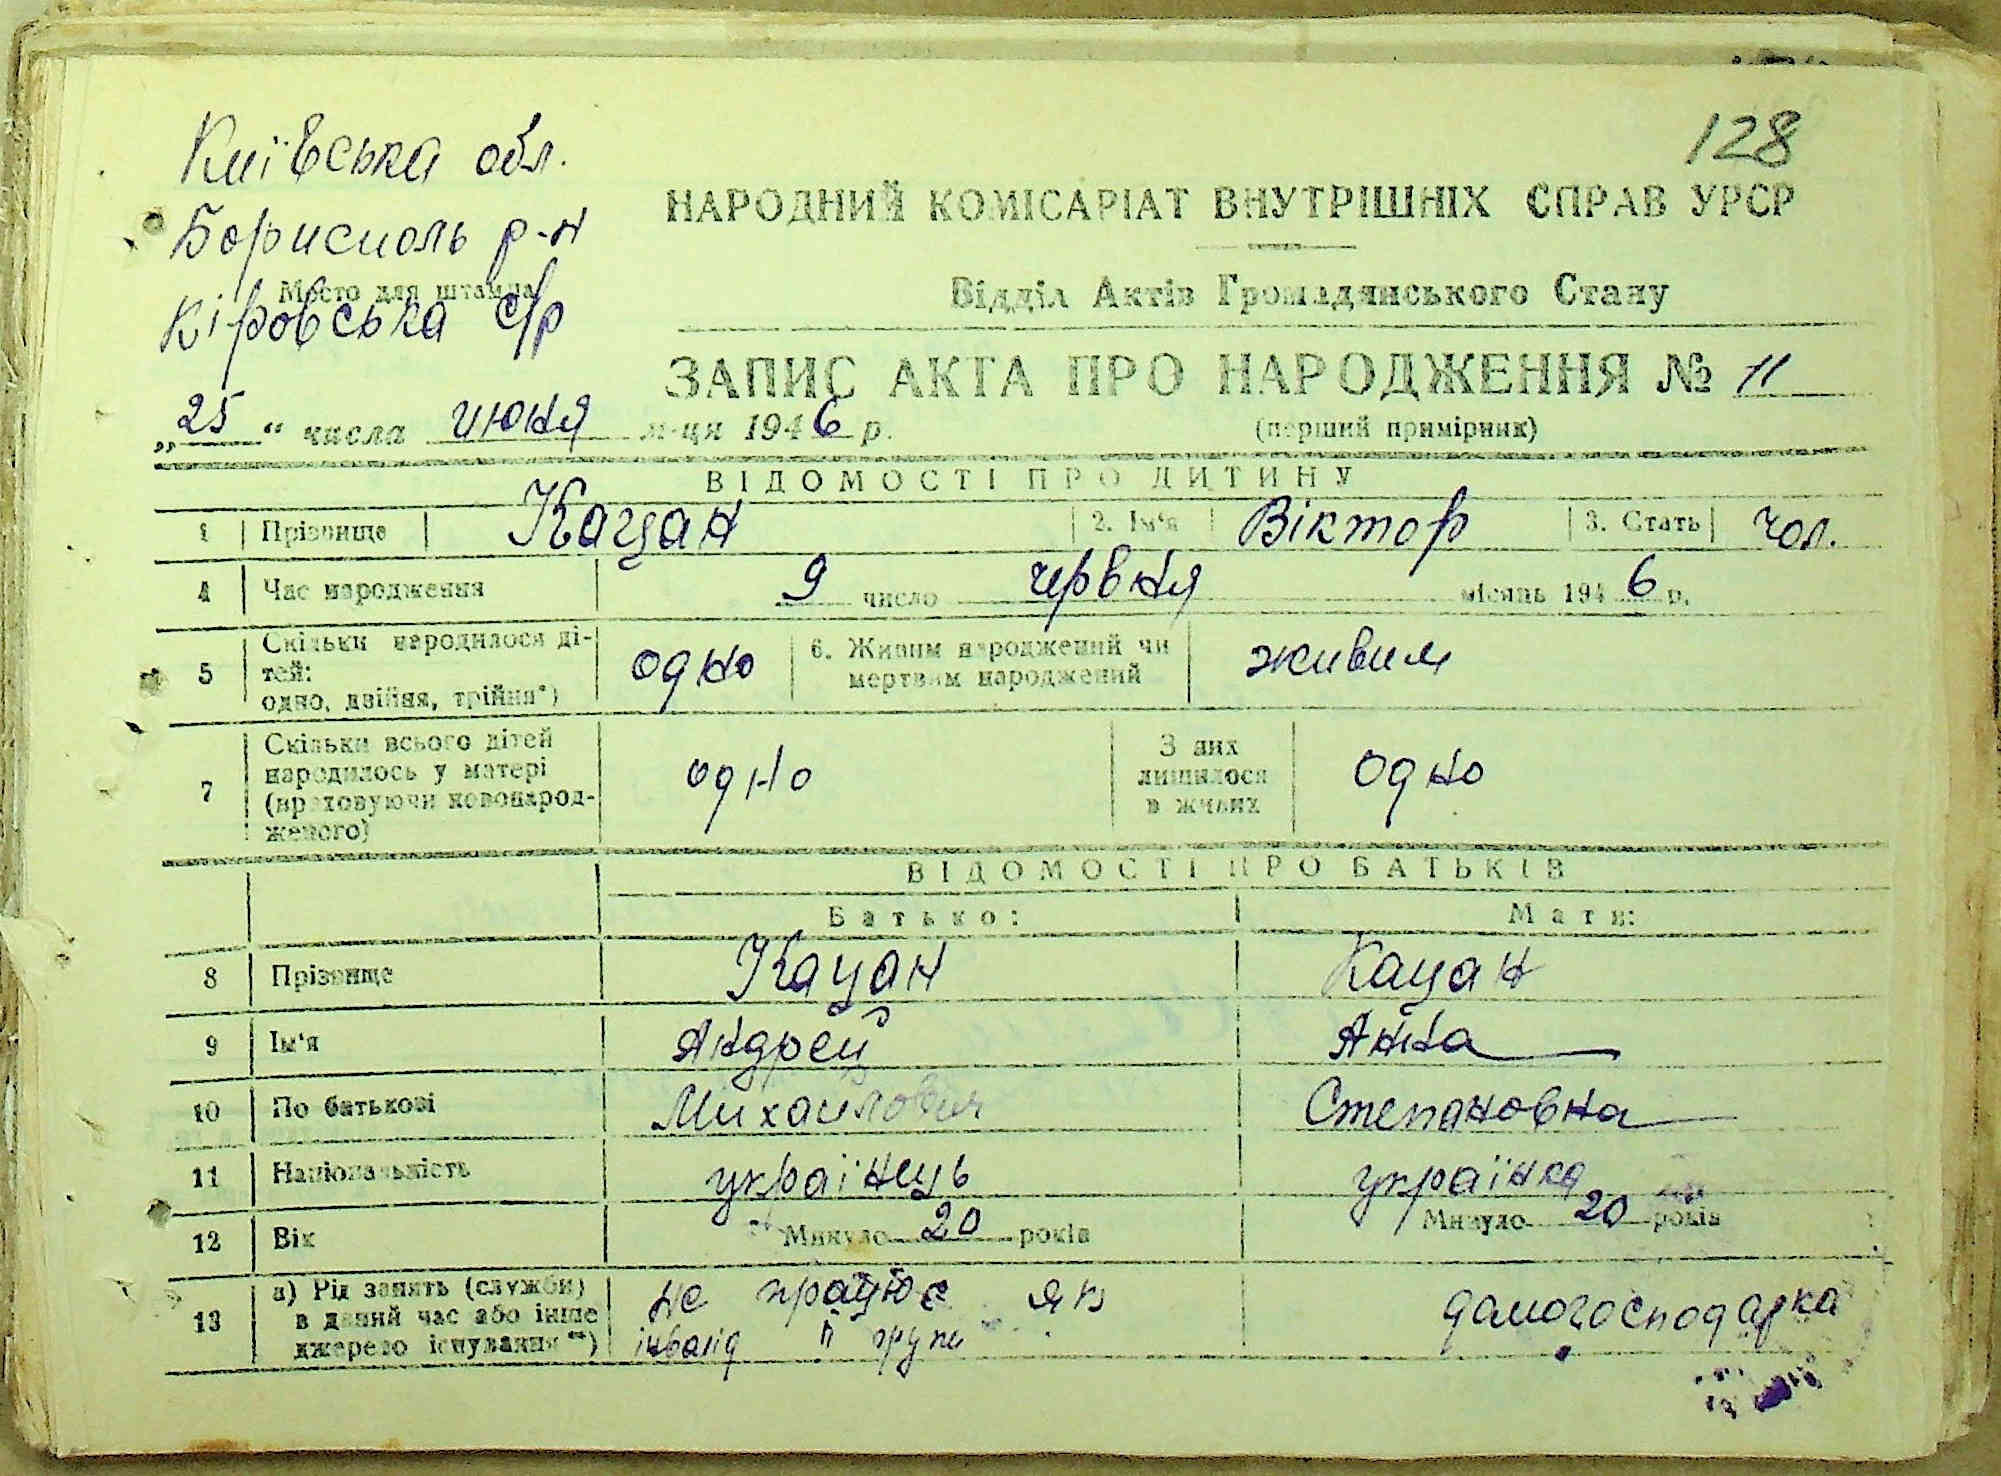 128
Київська обл.
Бориспіль р-н
Место для штампа
Кіровська с/р
НАРОДНИЙ КОМІСАРІАТ ВНУТРІШНІХ СПРАВ УРСР
Відділ Актів Громадянського Стану
ЗАПИС АКТА ПРО НАРОДЖЕННЯ № 11
„25“ числа июня м-ця 1946 р.
(перший примірник)
ВІДОМОСТІ ПРО ДИТИНУ
1 Прізвище Кацан 2. Ім'я Віктор 3. Стать чол.
4 Час народження 9 число червня місяць 1946 р.
5 Скільки народилося ді-
тей:
одно, двійня, трійня*)
одно
6. Живим народжений чи
мертвим народжений
живим
7 Скільки всього дітей
народилось у матері
(враховуючи новонарод-
женого)
одно
З них
лишилося
в живих
одно
ВІДОМОСТІ ПРО БАТЬКІВ
Батько: Мати:
8 Прізвище Кацан Кацан
9 Ім'я Андрей Анна
10 По батькові Михайлович Степановна
11 Національність українець українка
12 Вік Минуло 20 років Минуло 20 років
13 а) Рід занять (служби)
в даний час або інше
джерело існування**)
не працює як
інвалід II групи
домогосподарка